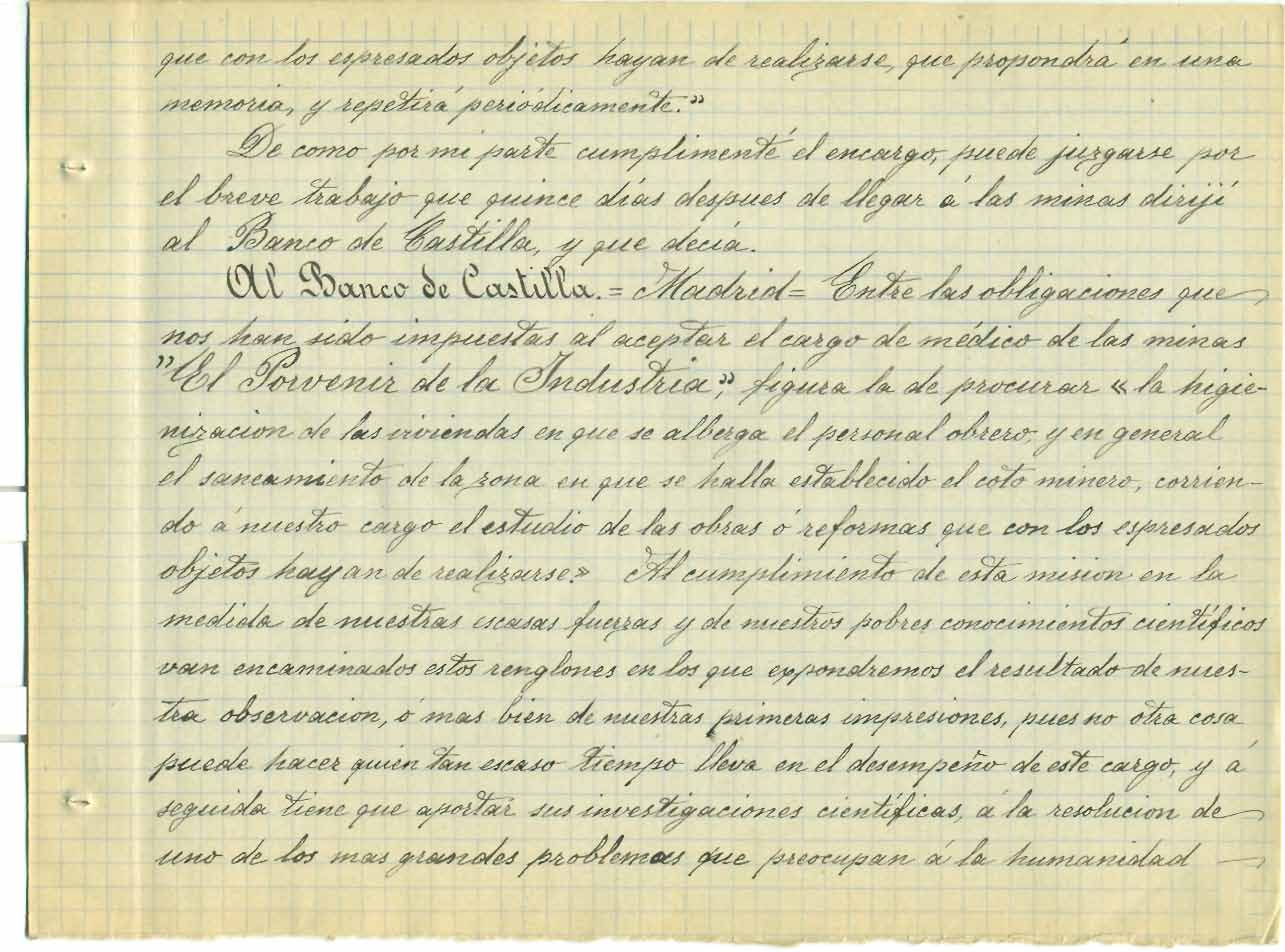 que con los espresados objetos hayan de realizarse, que propondrá en una
memoria, y repetirá periódicamente."
De como por mi parte cumplimenté el encargo, puede juzgarse por
el breve trabajo que quince días despues de llegar á las minas dirijí
al Banco de Castilla, y que decía.
Al Banco de Castilla. = Madrid = Entre las obligaciones que
nos han sido impuestas al aceptar el cargo de médico de las minas
"El Porvenir de la Industria", figura la de procurar « la higie-
nizacion de las viviendas en que se alberga el personal obrero, y en general
el saneamiento de la zona en que se halla establecido el coto minero, corrien-
do á nuestro cargo el estudio de las obras ó reformas que con los espresados
objetos hayan de realizarse.» Al cumplimiento de esta mision en la
medida de nuestras escasas fuerzas y de nuestros pobres conocimientos científicos
van encaminados estos renglones en los que expondremos el resultado de nues-
tra observacion, ó mas bien de nuestras primeras impresiones, pues no otra cosa
puede hacer quien tan escaso tiempo lleva en el desempeño de este cargo, y á
seguida tiene que aportar sus investigaciones científicas, á la resolucion de
uno de los mas grandes problemas que preocupan á la humanidad